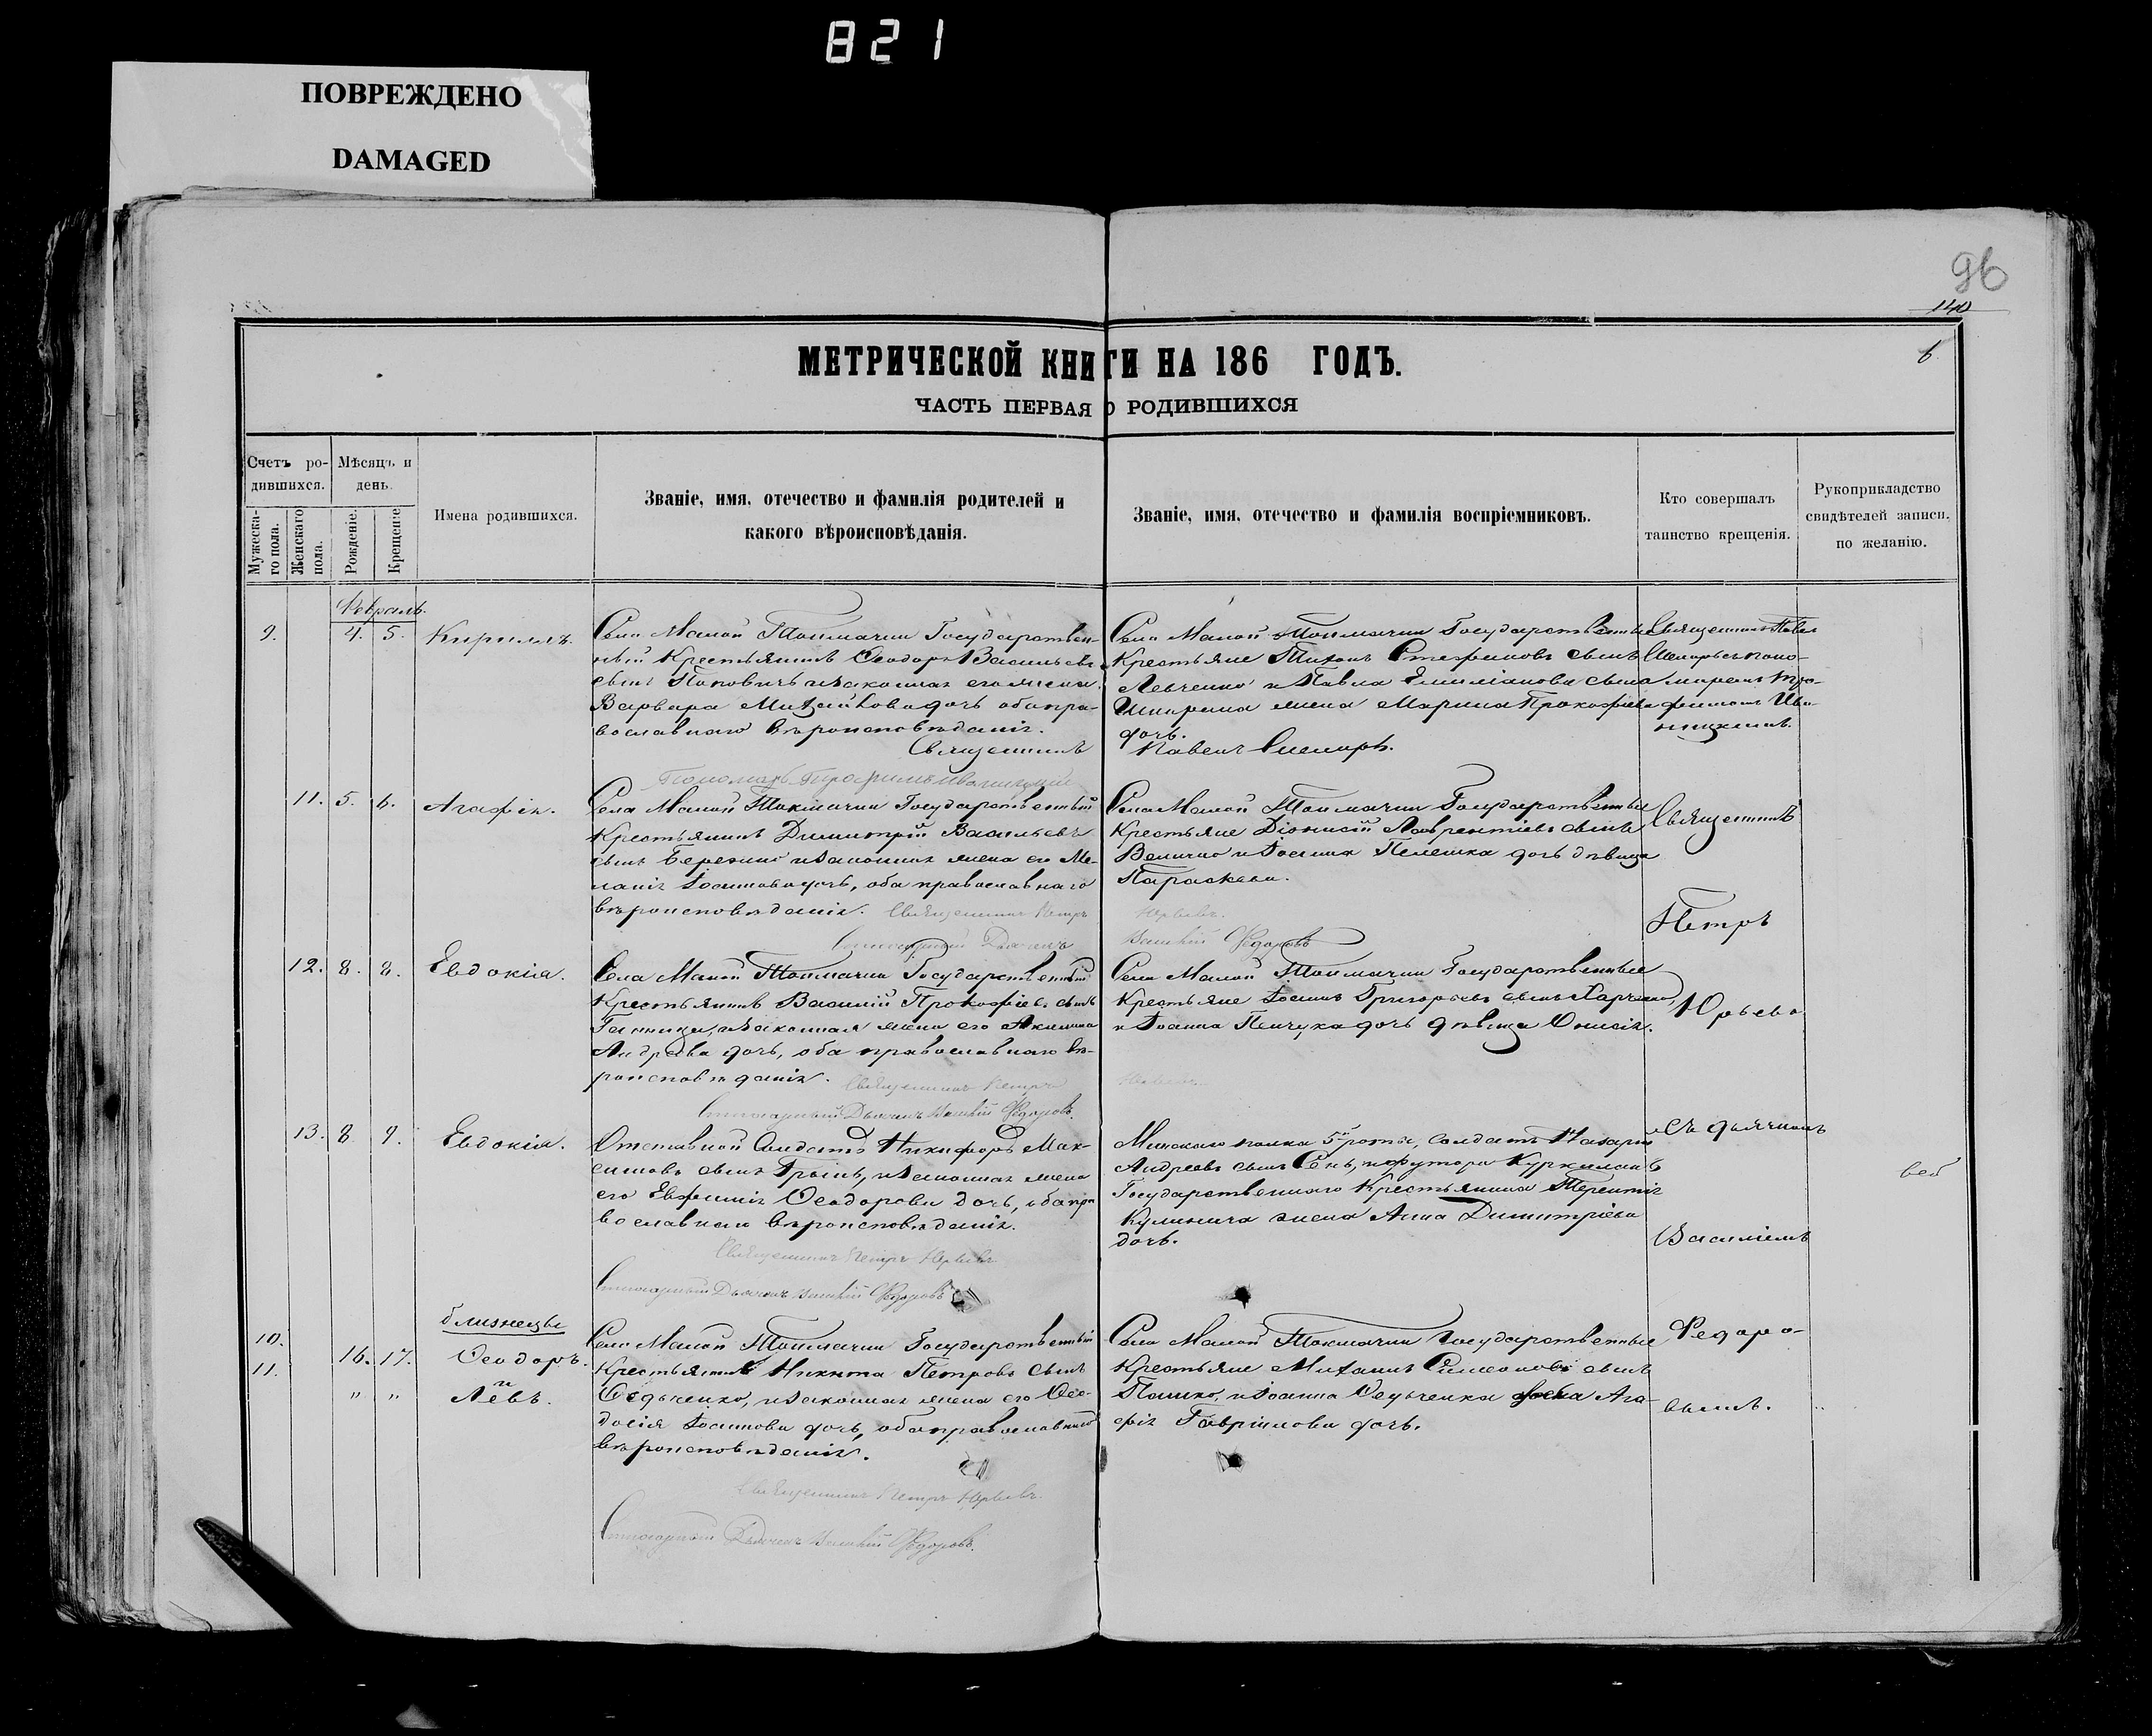 821
ПОВРЕЖДЕНО
DAMAGED
96
140
6
МЕТРИЧЕСКОЙ КНИГИ НА 186 ГОДЪ.
ЧАСТЬ ПЕРВАЯ О РОДИВШИХСЯ
Счетъ ро-
дившихся.
Мѣсяцъ и
день.
Мужеска-
го пола.
Женскаго
пола.
Рожденіе.
Крещеніе
Имена родившихся.
Званіе, имя, отечество и фамилія родителей и
какого вѣроисповѣданія.
Званіе, имя, отечество и фамилія воспріемниковъ.
Кто совершалъ
таинство крещенія.
Рукоприкладство
свидѣтелей записи,
по желанію.
Февраль.
9. 4. 5. Кириллъ.
Села Малой Токмачки Государствен-
ный Крестьянинъ Ѳеодоръ Васильевъ
сынъ Поповичъ и законная его жена
Варвара Михайлова дочь оба пра-
вославнаго вѣроисповѣданія.
Священникъ
Села Малой Токмачки Государственные
Крестьяне Тихонъ Стефановъ сынъ
Левченко и Павла Емиліанова сына
жена Марина Прокофіева
дочь.
Павелъ
Священникъ Павел
съ поно-
марем Тро-
фимомъ Ива-
ницкимъ.
Пономарь Трофимъ Иваницкій
11. 5. 6. Агафія.
Села Малой Токмачки Государственный
Крестьянинъ Димитрій Васильевъ
сынъ Бережно и законная жена его Ме-
ланія Іоаннова дочь, оба православнаго
вѣроисповѣданія. Священникъ Петръ
Юрьевъ.
Дьячекъ
Василій Федоровъ
Села Малой Токмачки Государственные
Крестьяне Діонисій Лаврентіевъ сынъ
Величко и Іоанна Пелешка дочь дѣвица
Параскева.
Священникъ
Петръ
12. 8. 8. Евдокія.
Села Малой Токмачки Государственный
Крестьянинъ Василій Прокофіевъ сынъ
и законная жена его Акилина
Андреева дочь, оба православнаго вѣ-
роисповѣданія. Священникъ Петръ
Юрьевъ.
Дьячекъ Василій Федоровъ.
Села Малой Токмачки Государственные
Крестьяне Іоаннъ Григорьевъ сынъ Харченко,
и Іоанна дочь дѣвица Онисія.
Юрьевъ
13. 8. 9. Евдокія.
Отставной Солдатъ Никифоръ Мак-
симовъ сынъ и законная жена
его Евфимія Ѳеодорова дочь, оба пра
вославнаго вѣроисповѣданія.
Священникъ Петръ Юрьевъ
Дьячекъ Василій Федоровъ
Минскаго полка 5й роты, солдатъ Назарій
Андреевъ сынъ Сень, и хутора Куркулакъ
Государственнаго Крестьянина Терентія
Кулинича жена Анна Димитріева
дочь.
съ дьячкомъ
Василіемъ
близнецы
10.
11.
16. 17. Ѳеодоръ.
и
" " Левъ.
Села Малой Токмачки Государственный
Крестьянинъ Никита Петровъ сынъ
Ѳедченко, и законная жена его Ѳео-
досія Іоаннова дочь, оба православнаго
вѣроисповѣданія.
Священникъ Петръ Юрьевъ.
Дьячекъ Василій Федоровъ.
Села Малой Токмачки Государственные
Крестьяне Михаилъ Симеоновъ сынъ
Пашко, и Іоанна Ѳедченка Ага-
фія Гавріилова дочь.
Федоро-
вымъ.